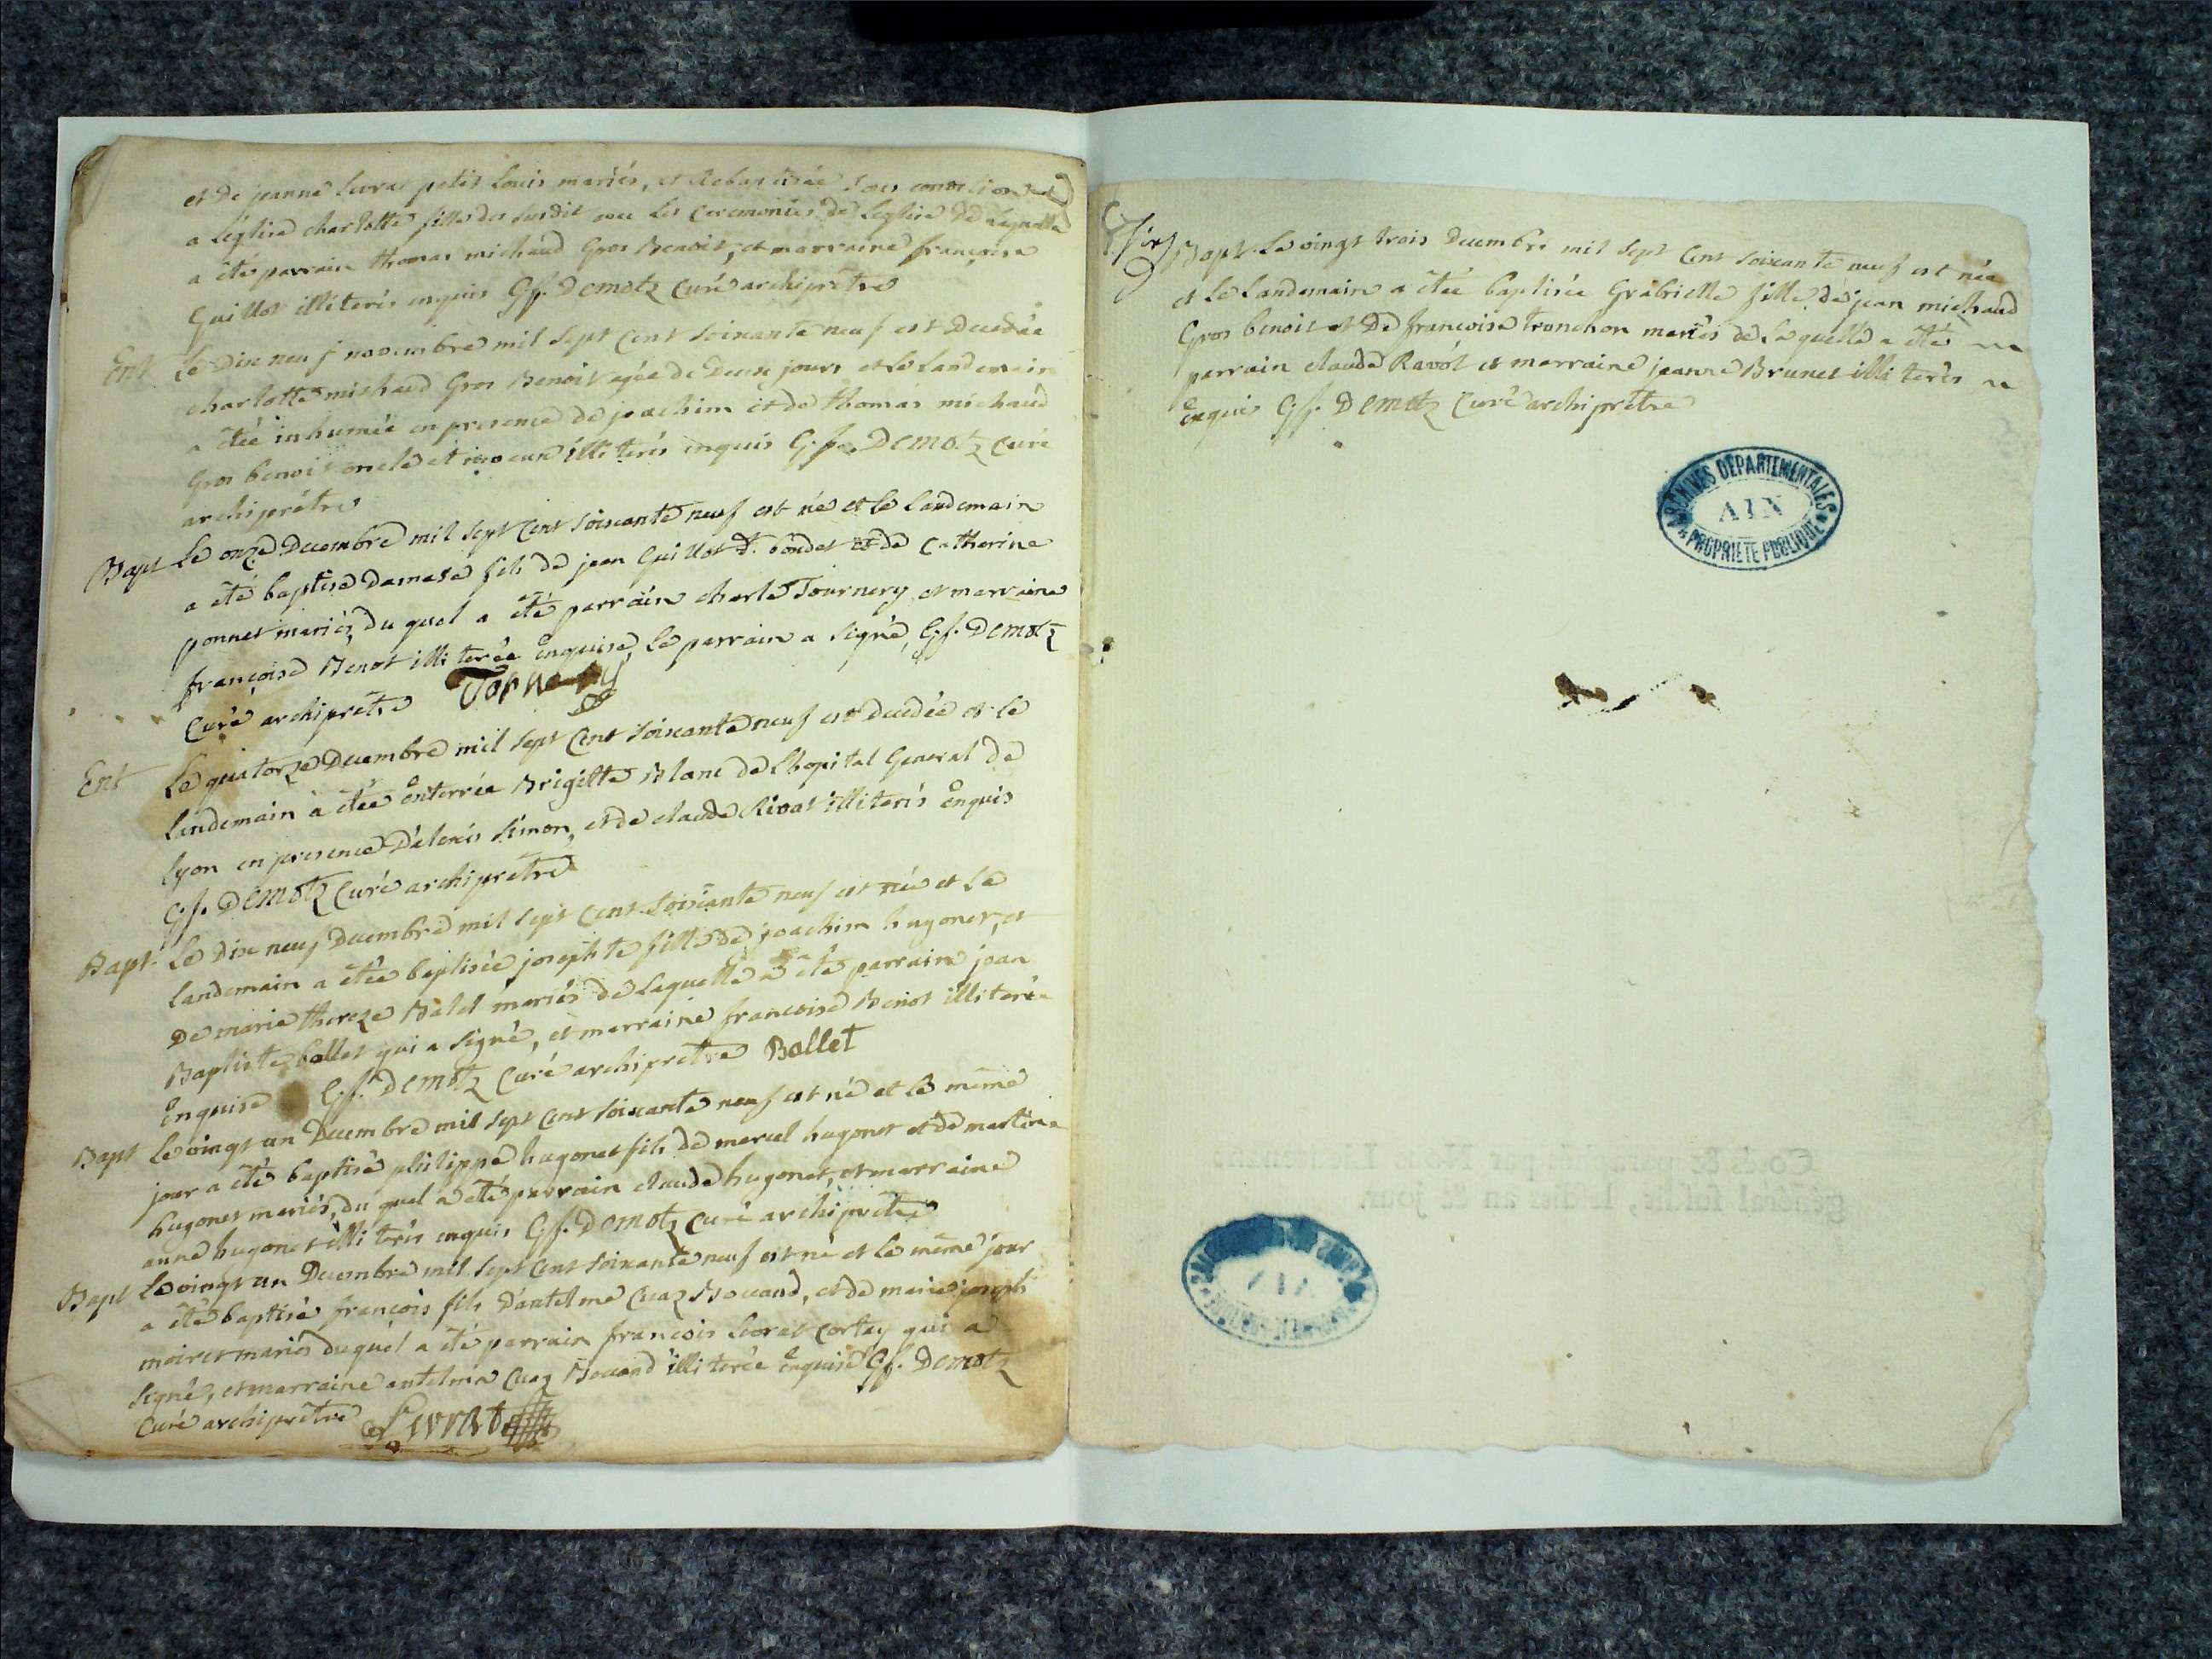 et De jeanne Livrat petit Louis mariés, et Rebaptisée sous condition
a l'église charlotte fille des susdit avec les Ceremonies de l'église de laquelle
a été parrain thomas michaud Gros Benoit, et marraine françoise
Guillot illiterés enquis G.f. Demotz Curé archiprêtre
Ent Le Dix neuf novembre mil sept Cent soixante neuf est Decedée
charlotte michaud Gros Benoit agée de Deux jours et le landemain
a étée inhumée en presence de joachim et de thomas michaud
Gros benoit oncle et illiterés enquis G.f. Demotz Curé
archiprêtre
Bapt Le onze Decembre mil sept Cent soixante neuf est né et le landemain
a été baptisé Damase fils de jean Guillot d. bondet et de Catherine
ponnet mariés, du quel a été parrain charle Tournery et marraine
françoise Benot illiterée enquise, le parrain a signé, G.f. Demotz
Curé archiprêtre
Ent Le quatorze Decembre mil sept Cent soixante neuf est Decedée et le
landemain a étée enterrée Brigitte Blanc de l'hopital General de
lyon en presence D'alexis simon, et de claude Rivat illiterés enquis
G.f. Demotz Curé archiprêtre
Bapt. Le Dix neuf Decembre mil sept Cent soixante neuf est née et le
landemain a étée baptisée josephte fille de joachim hugonet, et
De marie thereze Balet mariés de laquelle a été parrain jean
Baptiste ballet qui a signé, et marraine francoise Benot illiterée
enquise G.f. Demotz Curé archiprêtre Ballet
Bapt Le vingt un Decembre mil sept Cent soixante neuf est né et le même
jour a été baptisé philippe hugonet fils de marcel hugonet et de martine
hugonet mariés, du quel a été parrain claude hugonet, et marraine
anne hugonet illiterés enquis G.f. Demotz Curé archiprêtre
Bapt Le vingt un Decembre mil sept Cent soixante neuf est né et le même jour
a été baptisé françois fils D'antelme Cuaz Bouand, et de marie joseph
moiret mariés duquel a été parrain francois Livrat Cortey qui a
signé, et marraine antelma Cuaz Bouand illiterée enquise G.f. Demotz
Curé archiprêtre Livrat
Bapt. Le vingt trois Decembre mil sept Cent soixante neuf est née
et le landemain a étée baptisée Grabrielle fille de jean michaud
Gros benoit et De francoise tronchon mariés de laquelle a été
parrain claude Ravót et marraine jeanne Brunet illiterés
enquis G.f. Demotz Curé archiprêtre
ARCHIVES DÉPARTEMENTALES
AIN
PROPRIÉTÉ PUBLIQUE